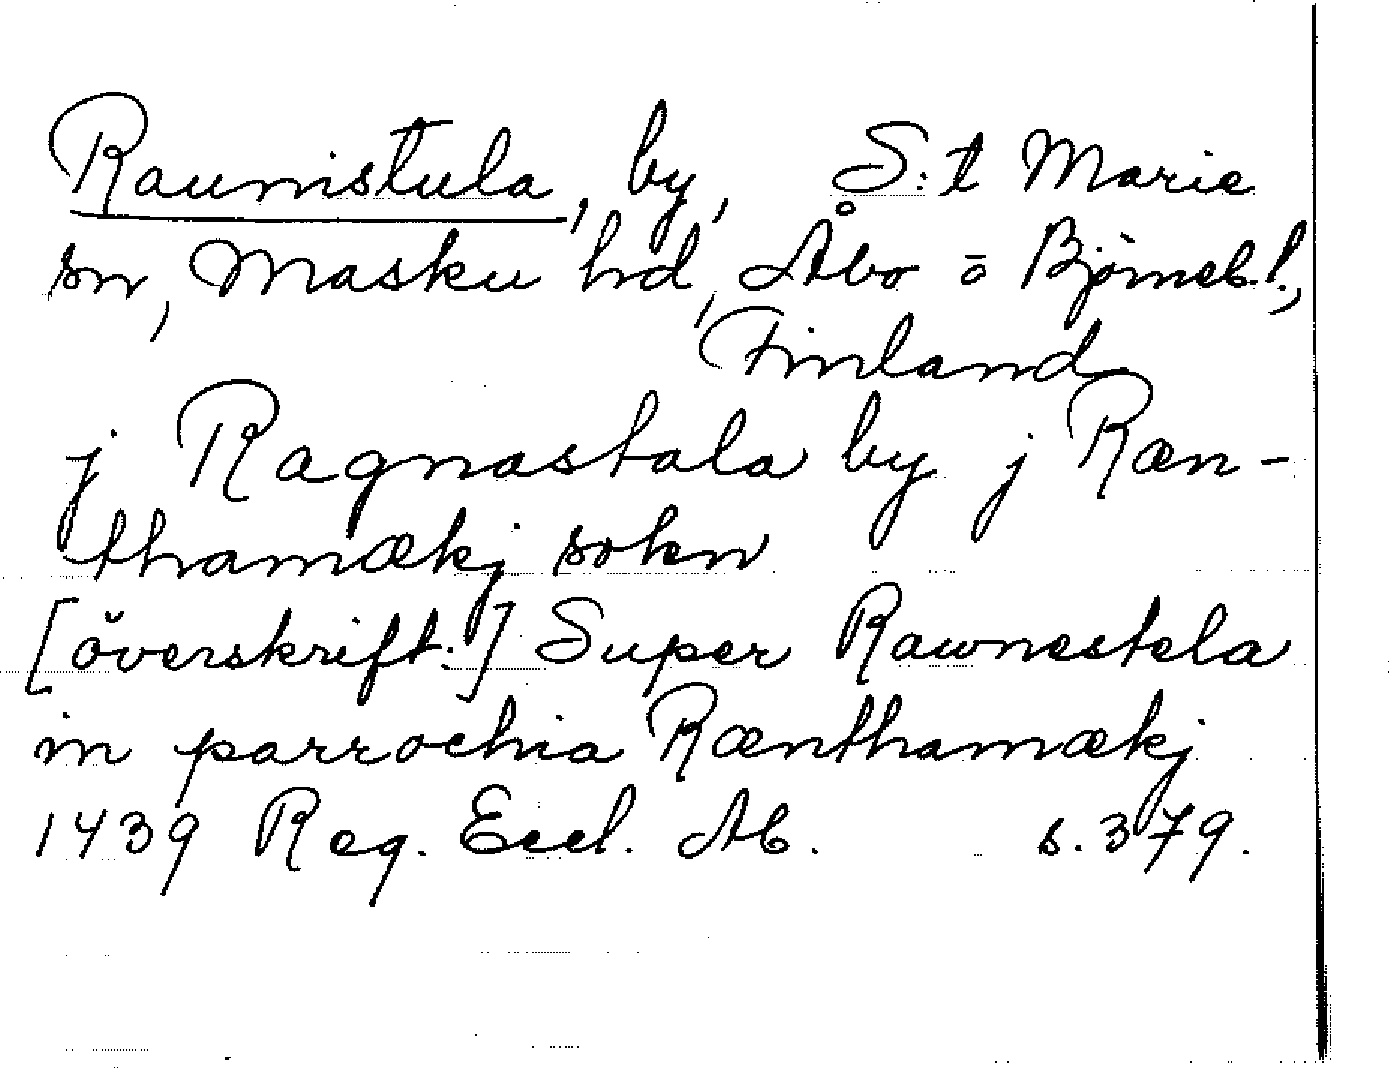 Raumistula, by, S:t Marie
sn, Masku hd, Åbo o Björneb.l.,
Finland
j Ragnastala by j Ræn-
thamækj sokn
[överskrift:] Super Rawnestela
in parrochia Rænthamækj
1439 Reg. Eccl. Ab. s. 379.